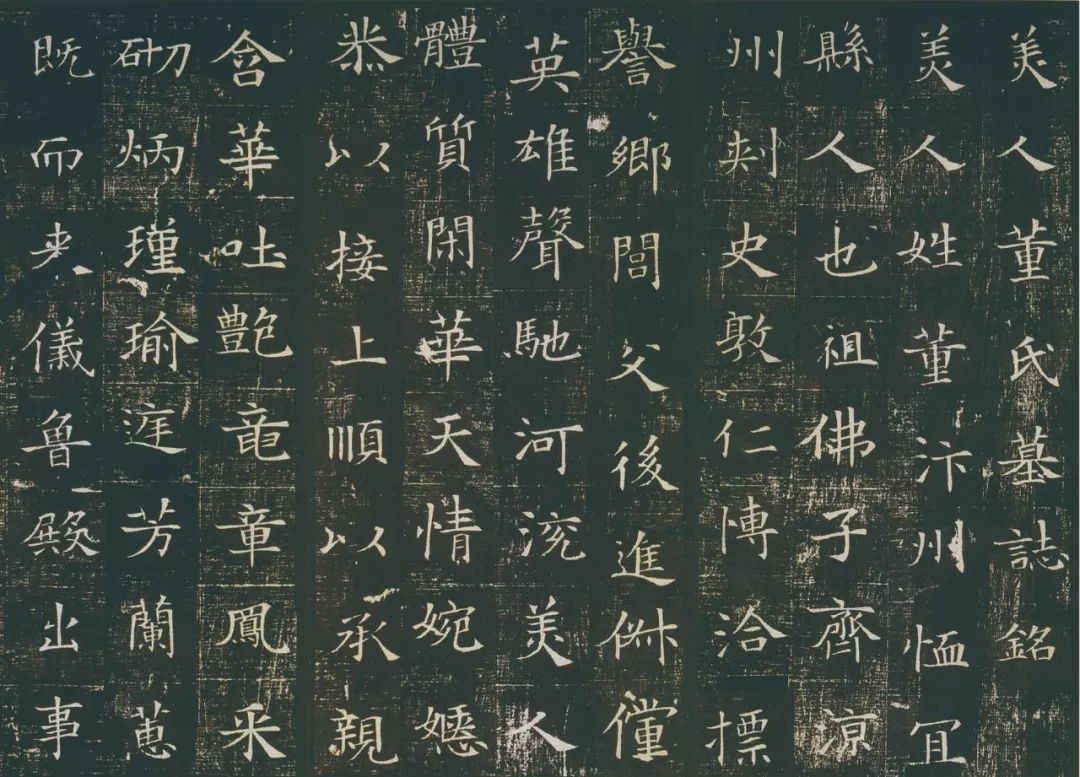 美人董氏墓誌銘
美人姓董汴州恤冝
縣人也祖佛子齊涼
州刾史敦仁博洽摽
譽鄉閭父後進俶儻
英雄聲馳河渷美人
體質閑華天情婉嫕
恭以接上順以承親
含華吐艷竜章鳳采
砌炳瑾瑜庭芳蘭蕙
既而来儀魯殿出事